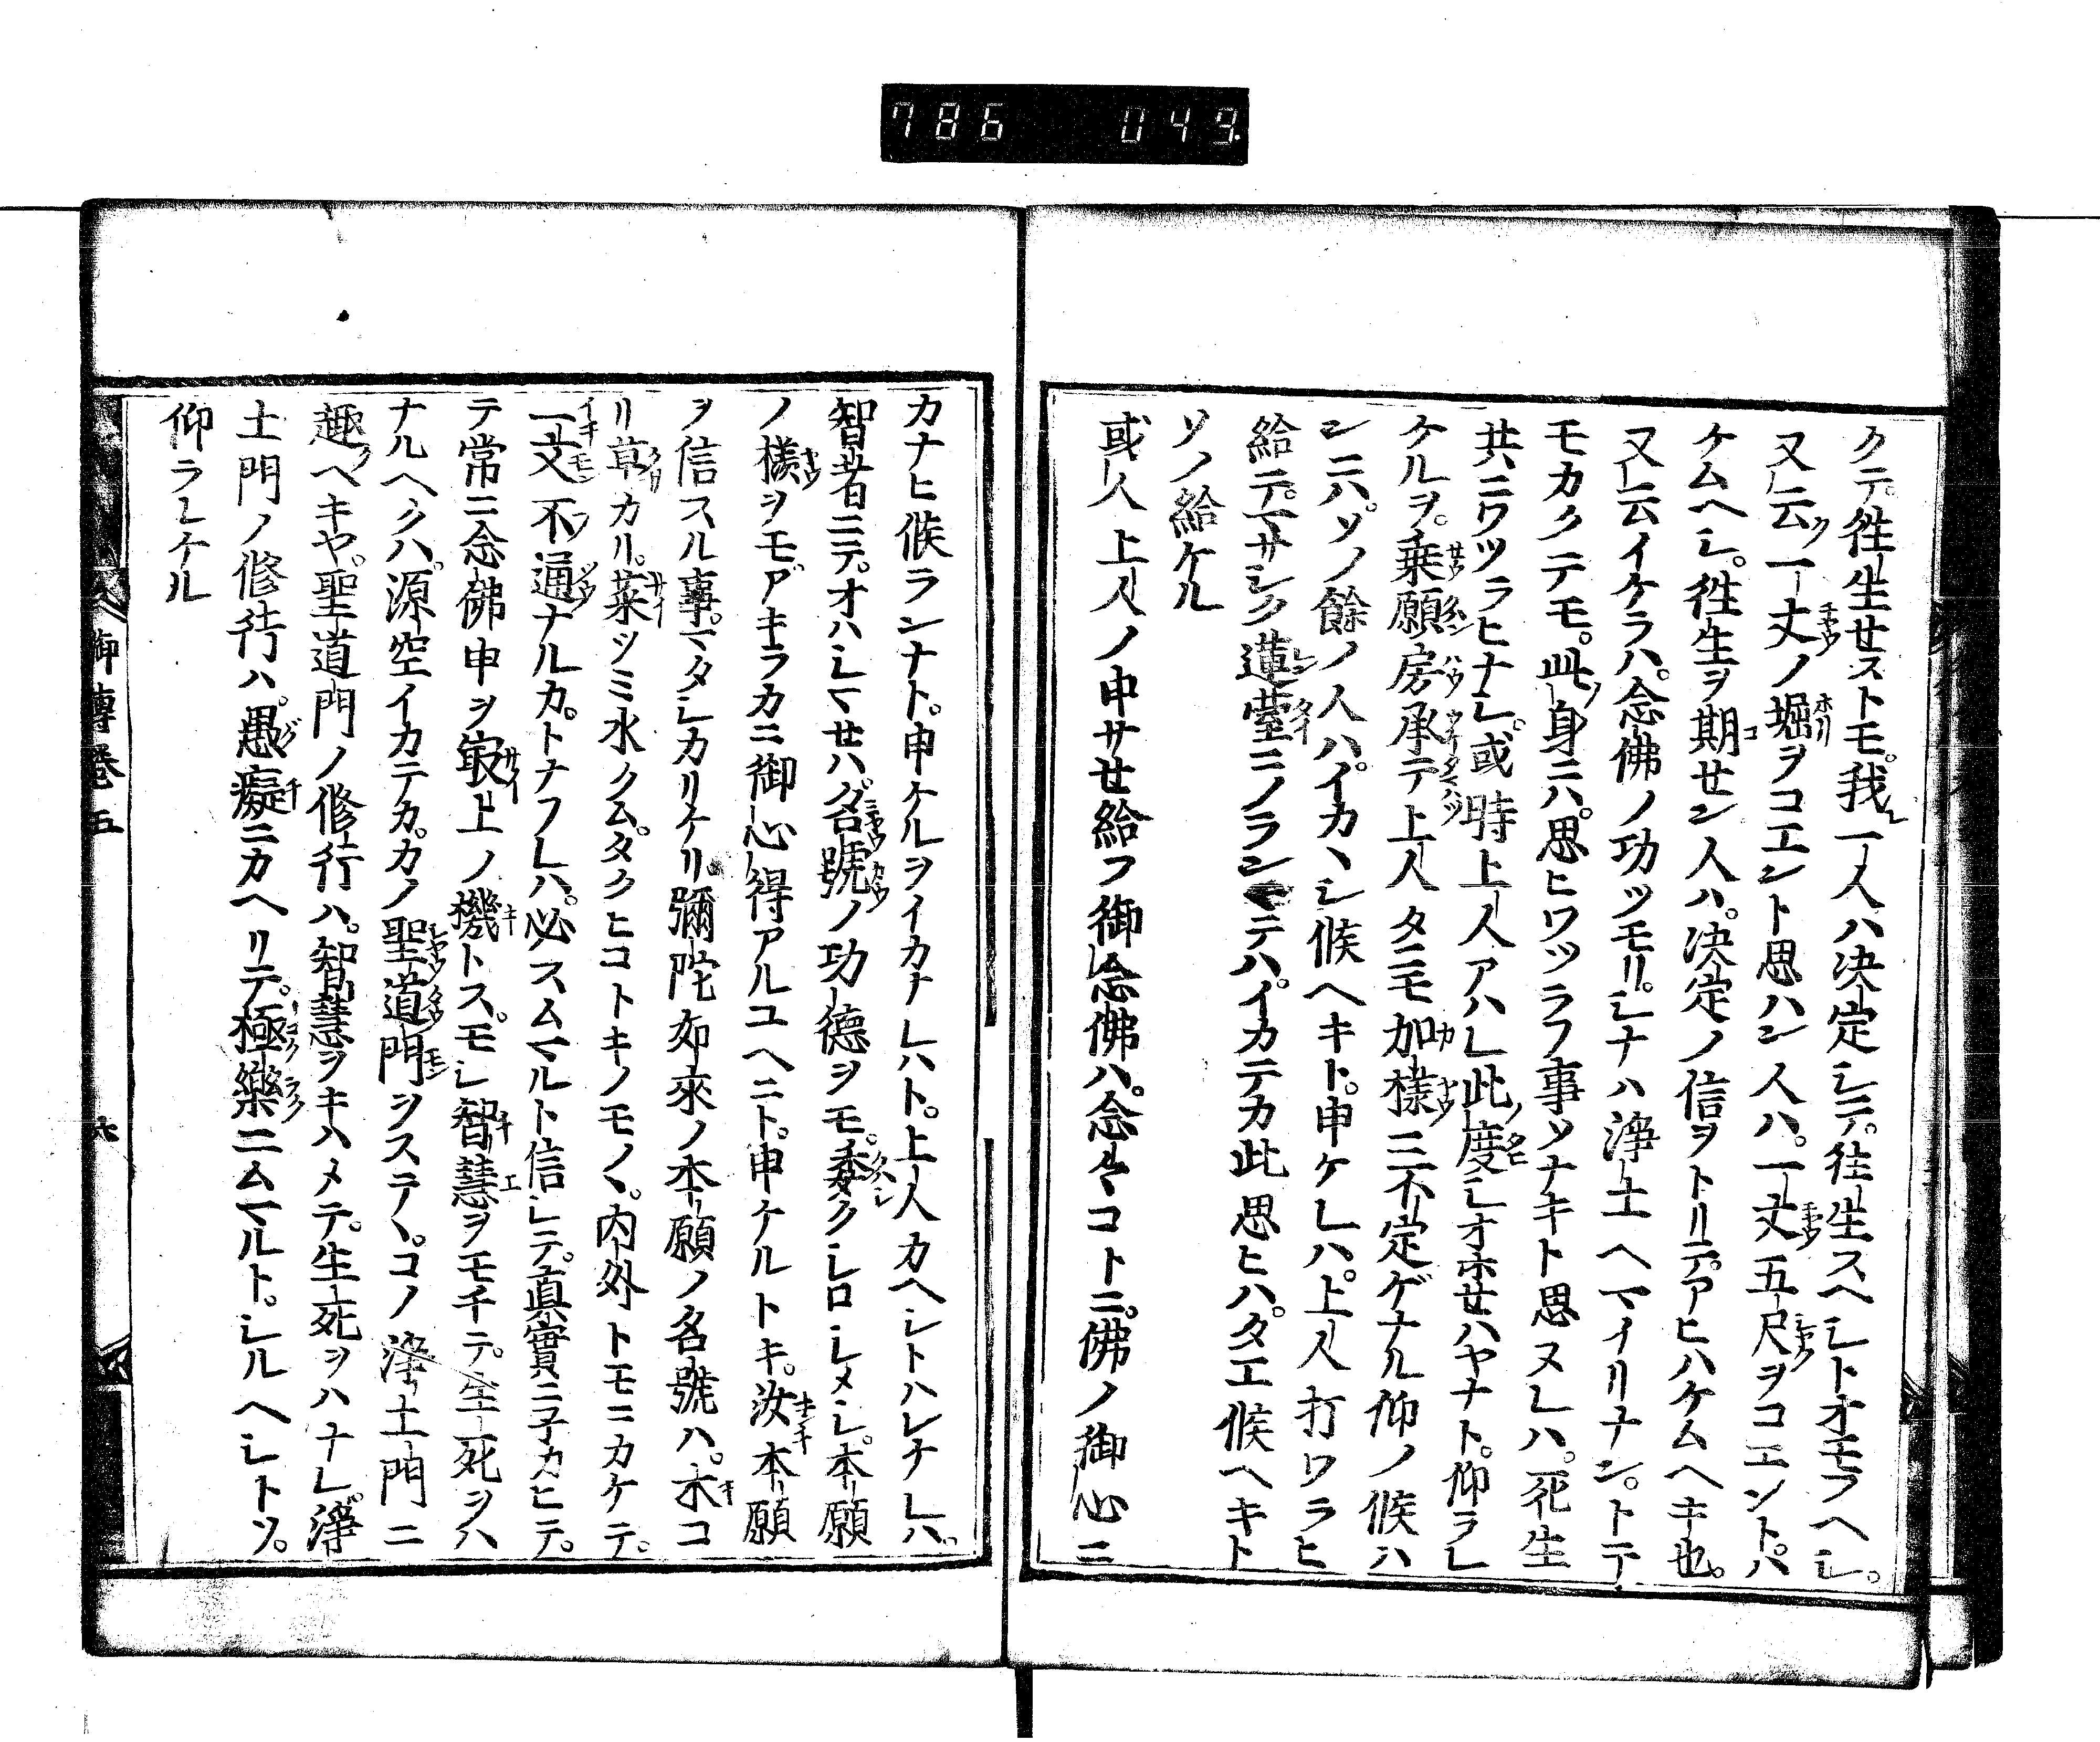 786 049
クテ。往生セストモ。我一人ハ決定シテ。往生スヘシトオモフヘシ。
又云一丈ノ堀ヲコエント思ハン人ハ。一丈五尺ヲコエントハ
ケムヘシ。往生ヲ期セン人ハ。決定ノ信ヲトリテ。アヒハケムヘキ也。
又云イケラハ。念佛ノ功ツモリ。シナハ淨土ヘマイリナン。トテ
モカクテモ。此身ニハ。思ヒワツラフ事ソナキト思ヌレハ。死生
共ニワツラヒナシ。或時上人アハレ此度シオホセハヤナト。仰ラレ
ケルヲ。乗願房承テ上人タニモ加樣ニ不定ゲナル仰ノ候ハ
ンニハ。ソノ餘ノ人ハ。イカヽシ候ヘキト。申ケレハ。上人打ワラヒ
給テ。マサシク蓮臺ニノランマテハ。イカテカ此思ヒハ。タエ候ヘキト
ソノ給ケル
或人上人ノ申サセ給フ御念佛ハ。念々コトニ。佛ノ御心ニ
カナヒ候ランナト。申ケルヲイカナレハト。上人カヘシトハレケレハ。
智者ニテ。オハシマセハ。名號ノ功德ヲモ。委クシロシメシ。本願
ノ樣ヲモアキラカニ御心得アルユヘニト。申ケルトキ。汝本願
ヲ信スル事。マタシカリケリ。彌陀如來ノ本願ノ名號ハ。木コ
リ草カリ。菜ツミ水クム。タクヒコトキノモノヽ。内外トモニカケテ。
一文不通ナルカ。トナフレハ。必スムマルト信シテ。眞實ニ子カヒテ。
テ常ニ念佛申ヲ最上ノ機トス。モシ智慧ヲモチテ。生死ヲハ
ナルヘクハ。源空イカテカ。カノ聖道門ヲステヽ。コノ淨土門ニ
趣ヘキヤ。聖道門ノ修行ハ。智慧ヲキハメテ。生死ヲハナレ。淨
土門ノ修行ハ。愚癡ニカヘリテ。極樂ニムマルト。シルヘシトソ。
仰ラレケル
御傳卷五 六